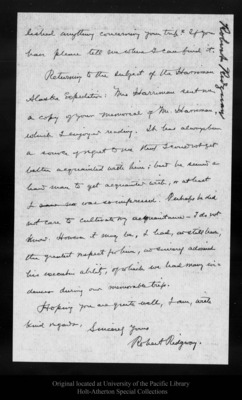 lished anything concerning your trip? If you
have please tell me where I can find it.
Returning to the subject of the Harriman
Alaska Expedition: Mrs Harriman sent me
a copy of your memorial of Mr Harriman,
which I enjoyed reading. It has always been
a source of regret to me that I could not get
better acquainted with him; but he seemed a
hard man to get acquainted with, or at least
I was so impressed. Perhaps he did
not care to cultivate my acquaintance—I do not
know. However it may be, I had, and still have,
the greatest respect for him, and sincerely admired
his executive ability, of which we had many evi-
dences during our memorable trip.
Hoping you are quite well, I am, with
kind regards, Sincerely Yours
Robert Ridgway.
Robert Ridgway
Original located at University of the Pacific Library
Holt-Atherton Special Collections